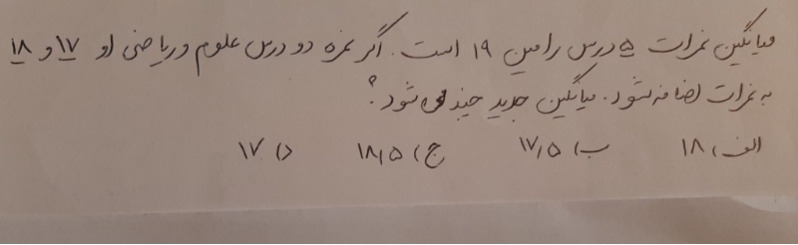 میانگین نمرات ۵ درس رامین ۱۹ است. اگر نمره دو درس علوم و ریاضی او ۱۷ و ۱۸
به نمرات اضافه شود. میانگین جدید چند می شود؟
الف) ۱۸ ب) ۱۷٫۵ ج) ۱۸٫۵ د) ۱۷